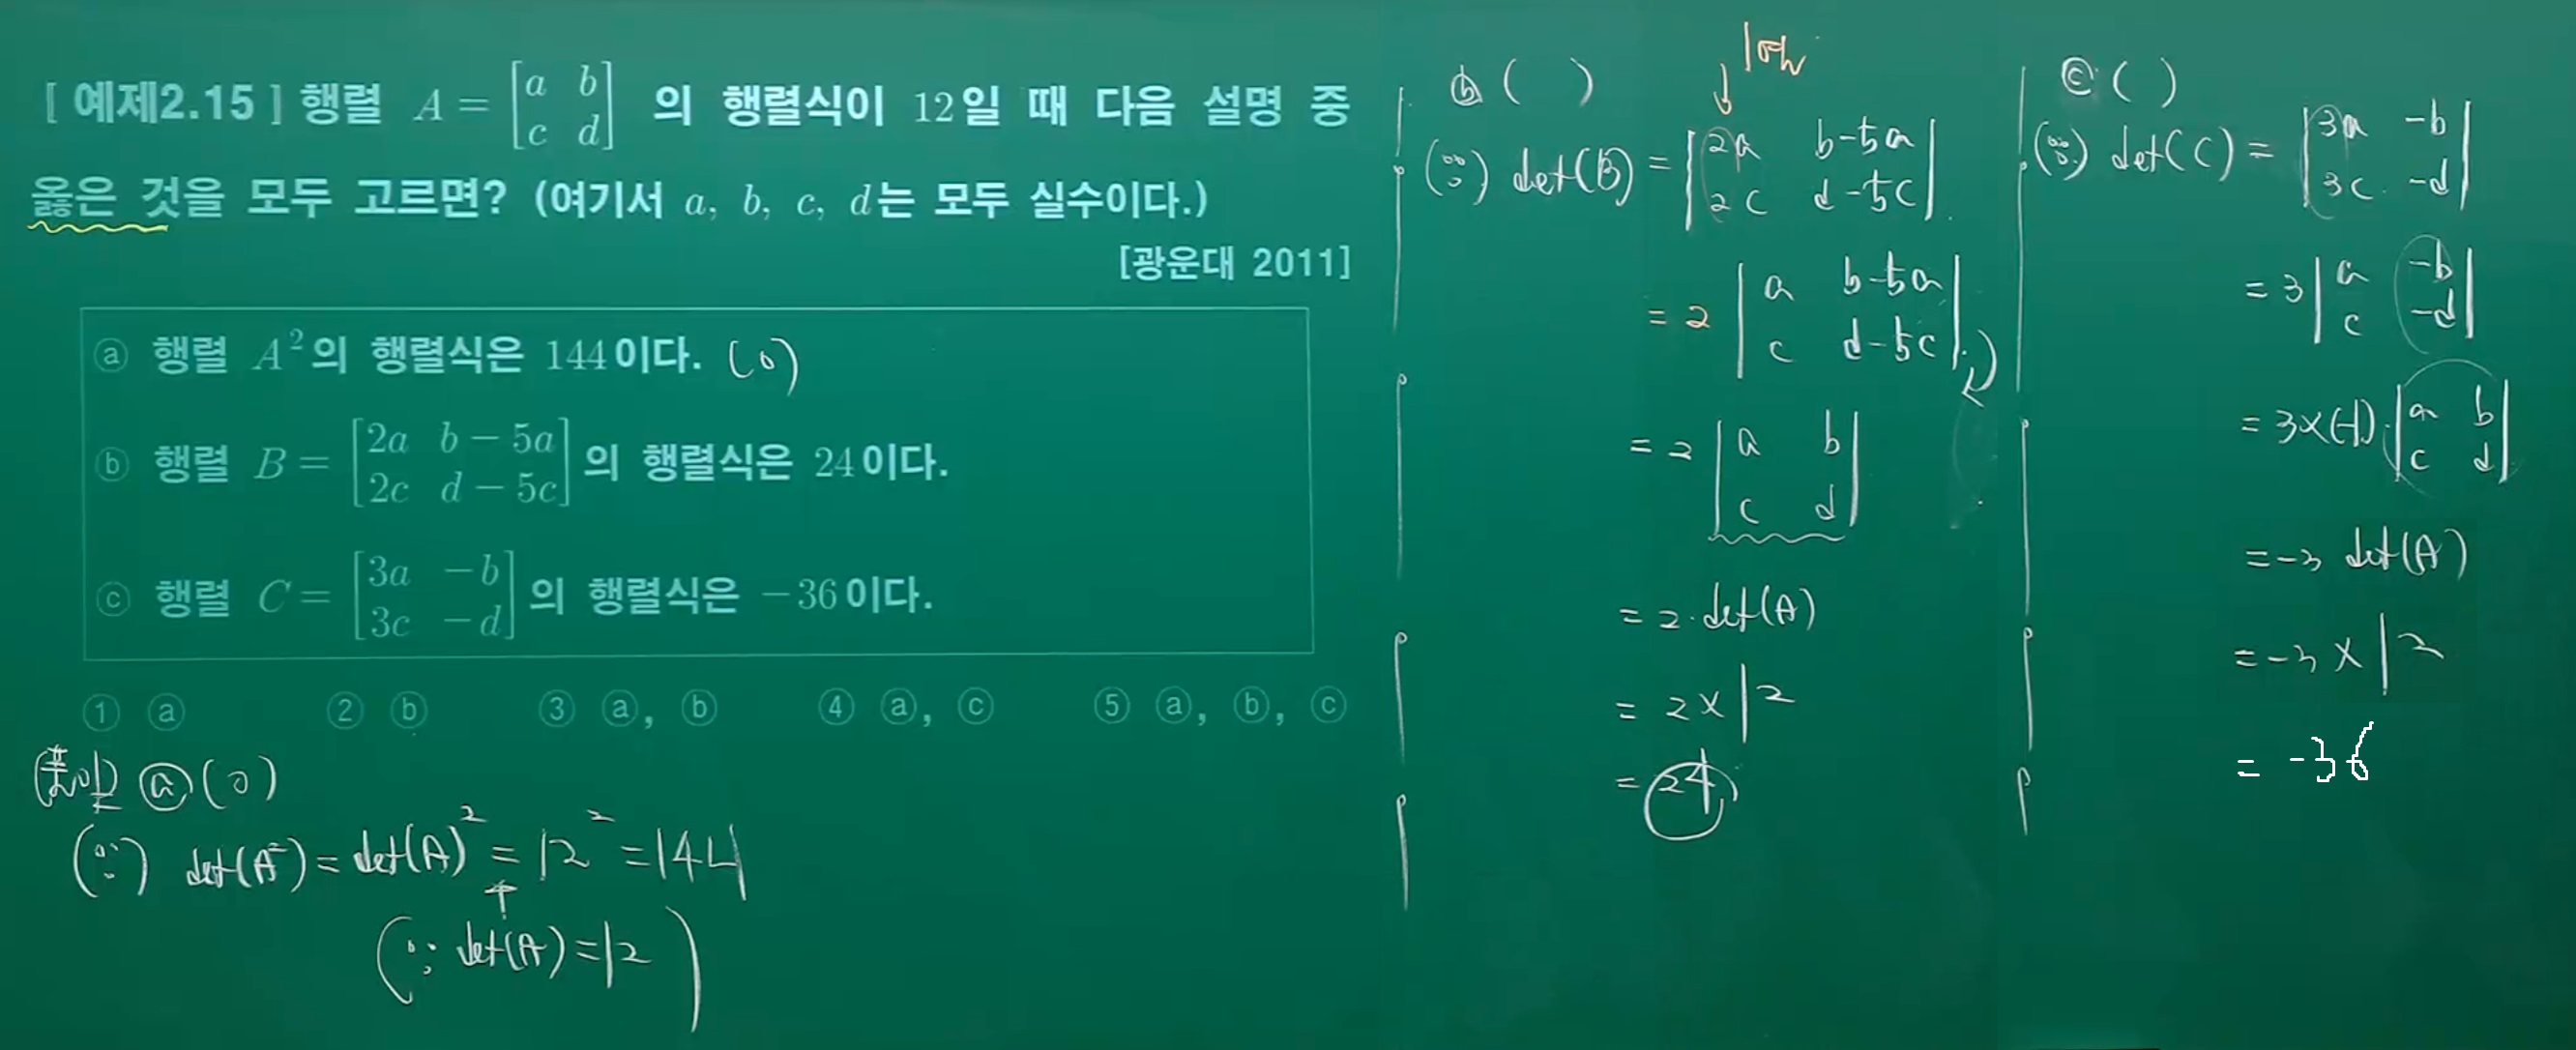 [ 예제2.15 ] 행렬 A = [a b; c d] 의 행렬식이 12일 때 다음 설명 중
옳은 것을 모두 고르면? (여기서 a, b, c, d는 모두 실수이다.)
[광운대 2011]
ⓐ 행렬 A²의 행렬식은 144이다. (o)
ⓑ 행렬 B = [2a b-5a; 2c d-5c] 의 행렬식은 24이다.
ⓒ 행렬 C = [3a -b; 3c -d] 의 행렬식은 -36이다.
① ⓐ ② ⓑ ③ ⓐ, ⓑ ④ ⓐ, ⓒ ⑤ ⓐ, ⓑ, ⓒ
(풀이) ⓐ (o)
(∵) det(A²) = det(A)² = 12² = 144
↑
(∵ det(A) = 12)
ⓑ ( )
↓
(∵) det(B) = |2a b-5a; 2c d-5c|
= 2 |a b-5a; c d-5c|
= 2 |a b; c d|
= 2·det(A)
= 2×12
= 24
ⓒ ( )
(∵) det(C) = |3a -b; 3c -d|
= 3 |a -b; c -d|
= 3×(-1)·|a b; c d|
= -3 det(A)
= -3×12
= -36